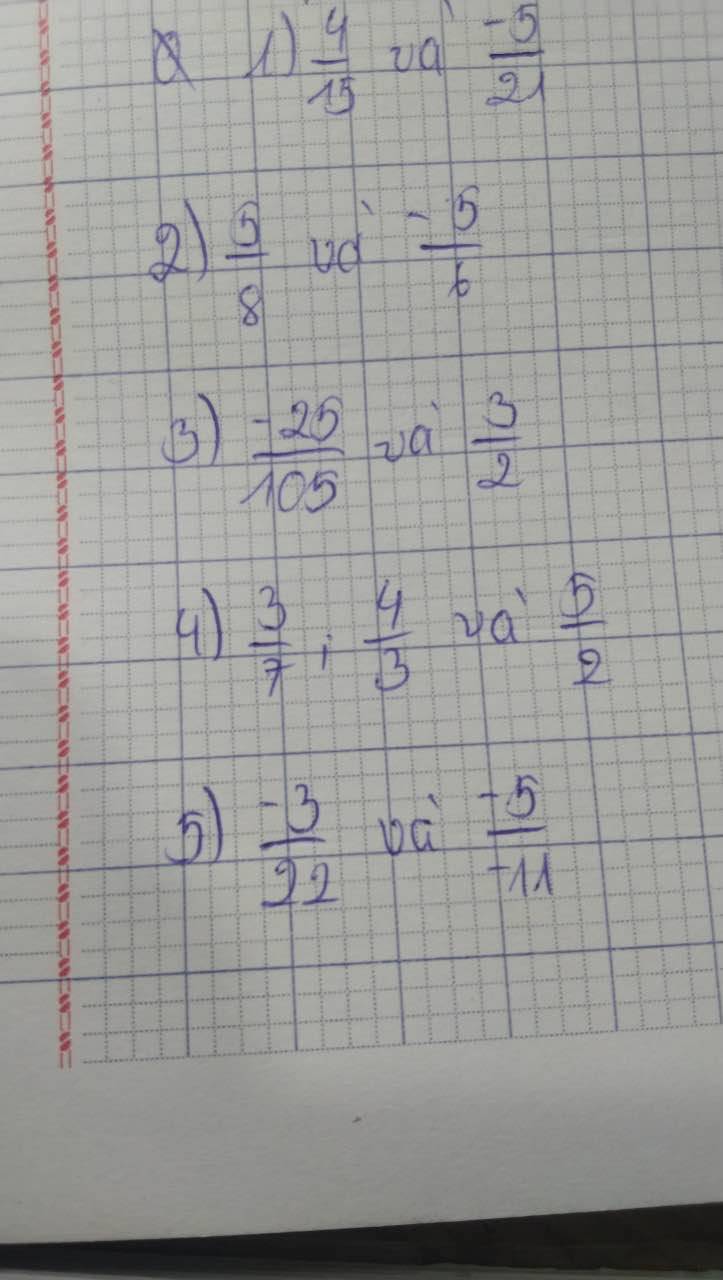 1) 4/15 và -5/21
2) 5/8 và -5/6
3) -25/105 và 3/2
4) 3/7 ; 4/3 và 5/2
5) -3/22 và -5/-11